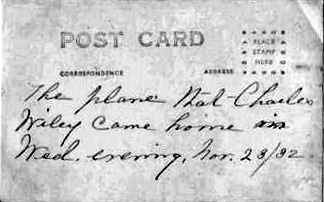 POST CARD
PLACE
STAMP
HERE
CORRESPONDENCE
ADDRESS
The plane that Charles
Wiley came home in
Wed. evening, Nov. 23/32